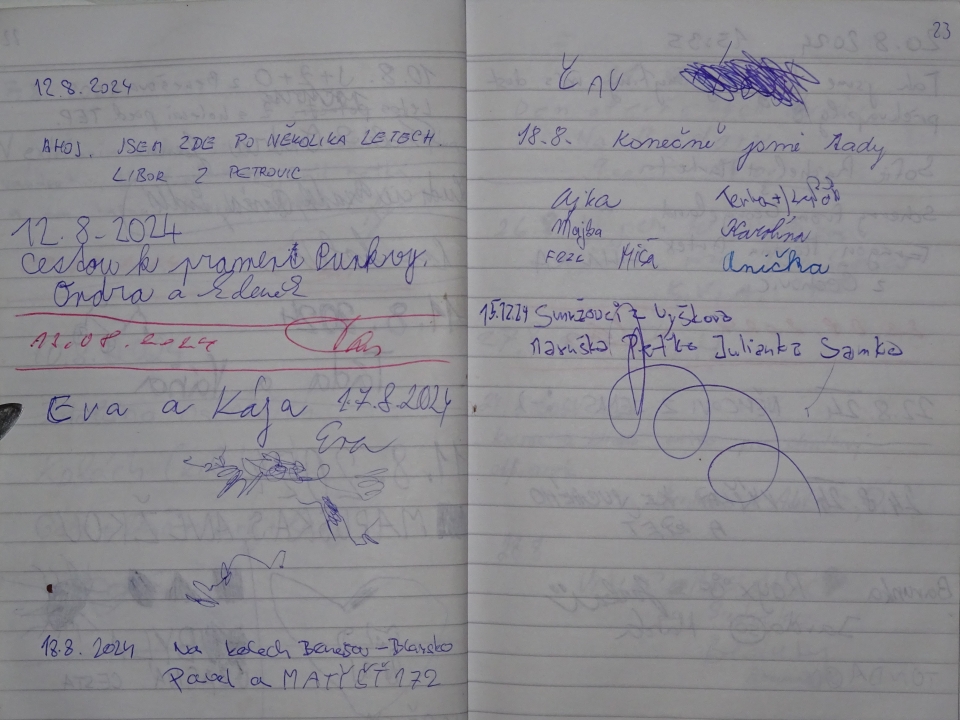 12.8.2024
AHOJ. JSEM ZDE PO NĚKOLIKA LETECH.
LIBOR Z PETROVIC
12.8-2024
Cestou k prameni Punkvy.
Ondra a Zdeněk
12.08.2024
Eva a Kája 17.8.2024
Eva
18.8. 2024 Na kolech Benešov-Blansko
Pavel a MATY ČT 172
23
ČAU
18.8. Konečně jsmě tady
Ajka
Majba Karolína
Míša Anička
15.12.24 Smržovci z Vyškova
Maruška Peťko Julianka Samko